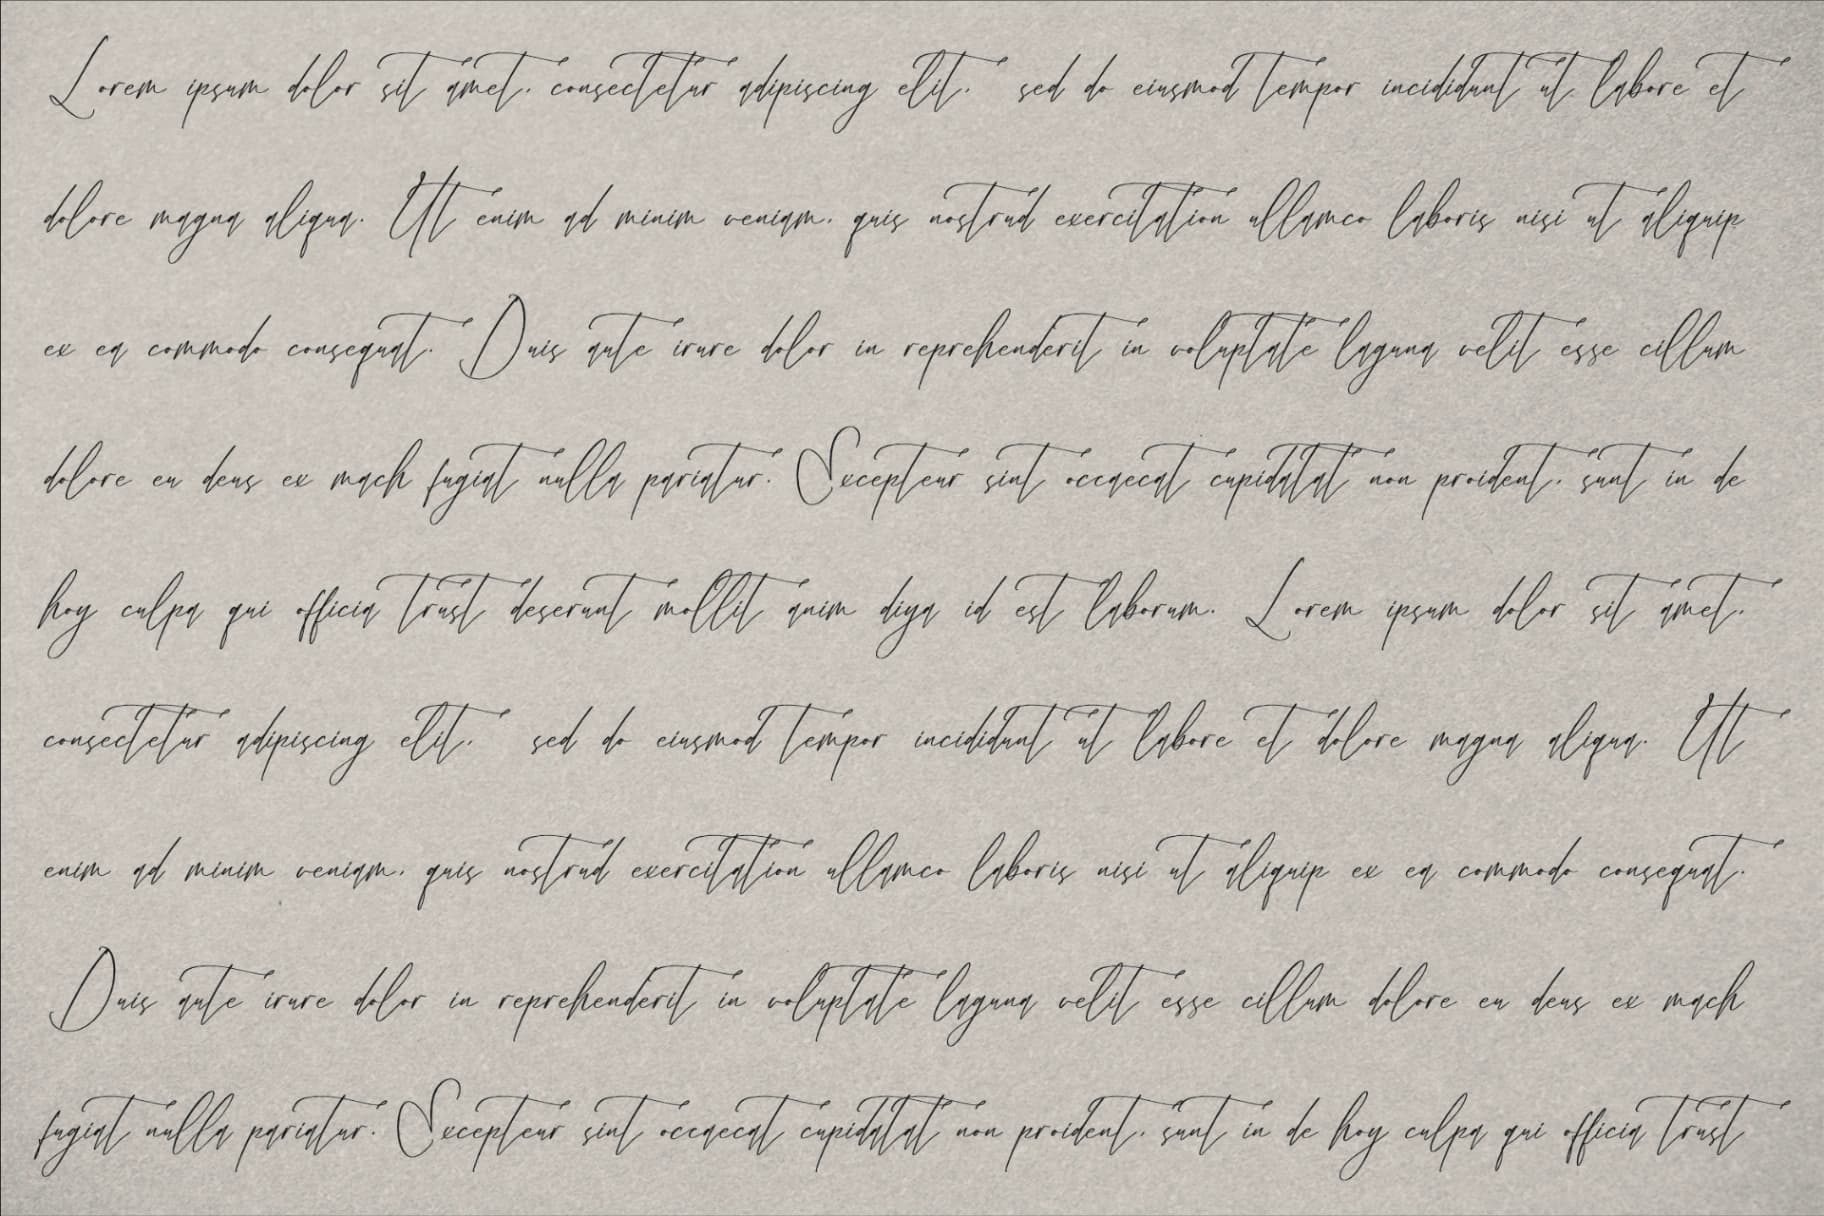 Lorem ipsum dolor sit amet, consectetur adipiscing elit, sed do eiusmod tempor incididunt ut labore et
dolore magna aliqua. Ut enim ad minim veniam, quis nostrud exercitation ullamco laboris nisi ut aliquip
ex ea commodo consequat. Duis aute irure dolor in reprehenderit in voluptate laguna velit esse cillum
dolore eu deus ex mach fugiat nulla pariatur. Excepteur sint occaecat cupidatat non proident, sunt in de
hoy culpa qui officia trust deserunt mollit anim diya id est laborum. Lorem ipsum dolor sit amet,
consectetur adipiscing elit, sed do eiusmod tempor incididunt ut labore et dolore magna aliqua. Ut
enim ad minim veniam, quis nostrud exercitation ullamco laboris nisi ut aliquip ex ea commodo consequat.
Duis aute irure dolor in reprehenderit in voluptate laguna velit esse cillum dolore eu deus ex mach
fugiat nulla pariatur. Excepteur sint occaecat cupidatat non proident, sunt in de hoy culpa qui officia trust